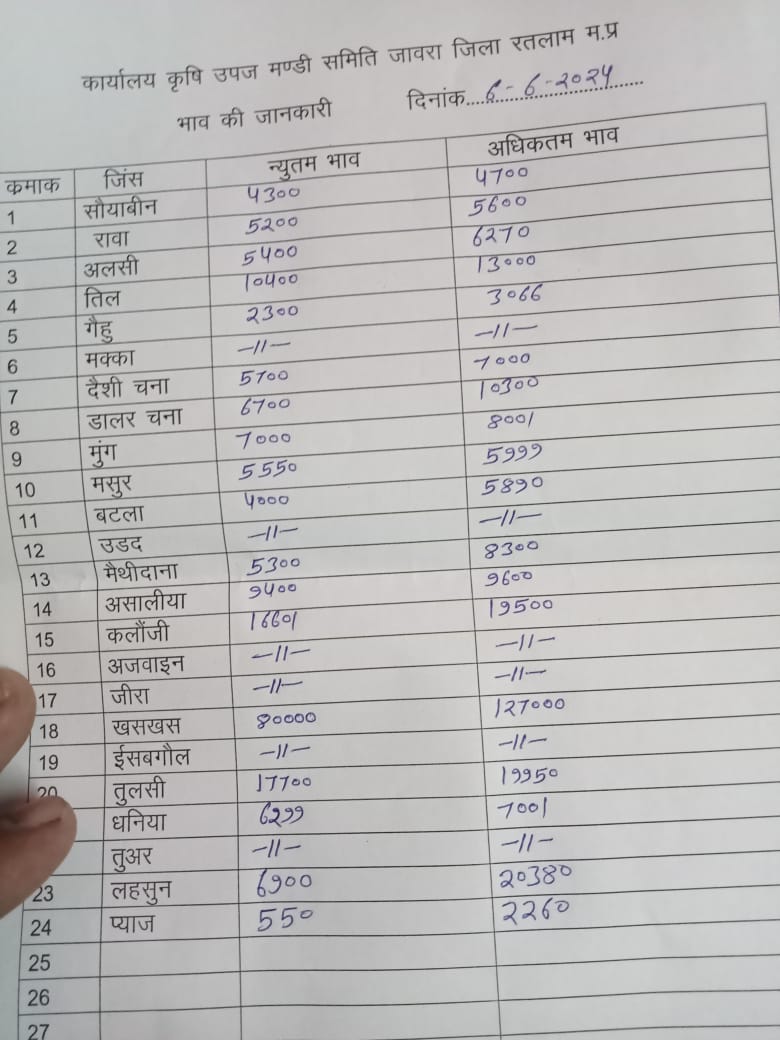 कार्यालय कृषि उपज मण्डी समिति जावरा जिला रतलाम म.प्र
भाव की जानकारी दिनांक....6-6-2024
कमाक जिंस न्युतम भाव अधिकतम भाव
1 सौयाबीन 4300 4700
2 रावा 5200 5600
3 अलसी 5400 6270
4 तिल 10400 13000
5 गैहु 2300 3066
6 मक्का -11- -11-
7 दैशी चना 5700 7000
8 डालर चना 6700 10300
9 मुंग 7000 8001
10 मसुर 5550 5999
11 बटला 4000 5890
12 उडद -11- -11-
13 मैथीदाना 5300 8300
14 असालीया 9400 9600
15 कलौंजी 16601 19500
16 अजवाइन -11- -11-
17 जीरा -11- -11-
18 खसखस 80000 127000
19 ईसबगौल -11- -11-
20 तुलसी 17700 19950
धनिया 6299 7001
तुअर -11- -11-
23 लहसुन 6900 20380
24 प्याज 550 2260
25
26
27